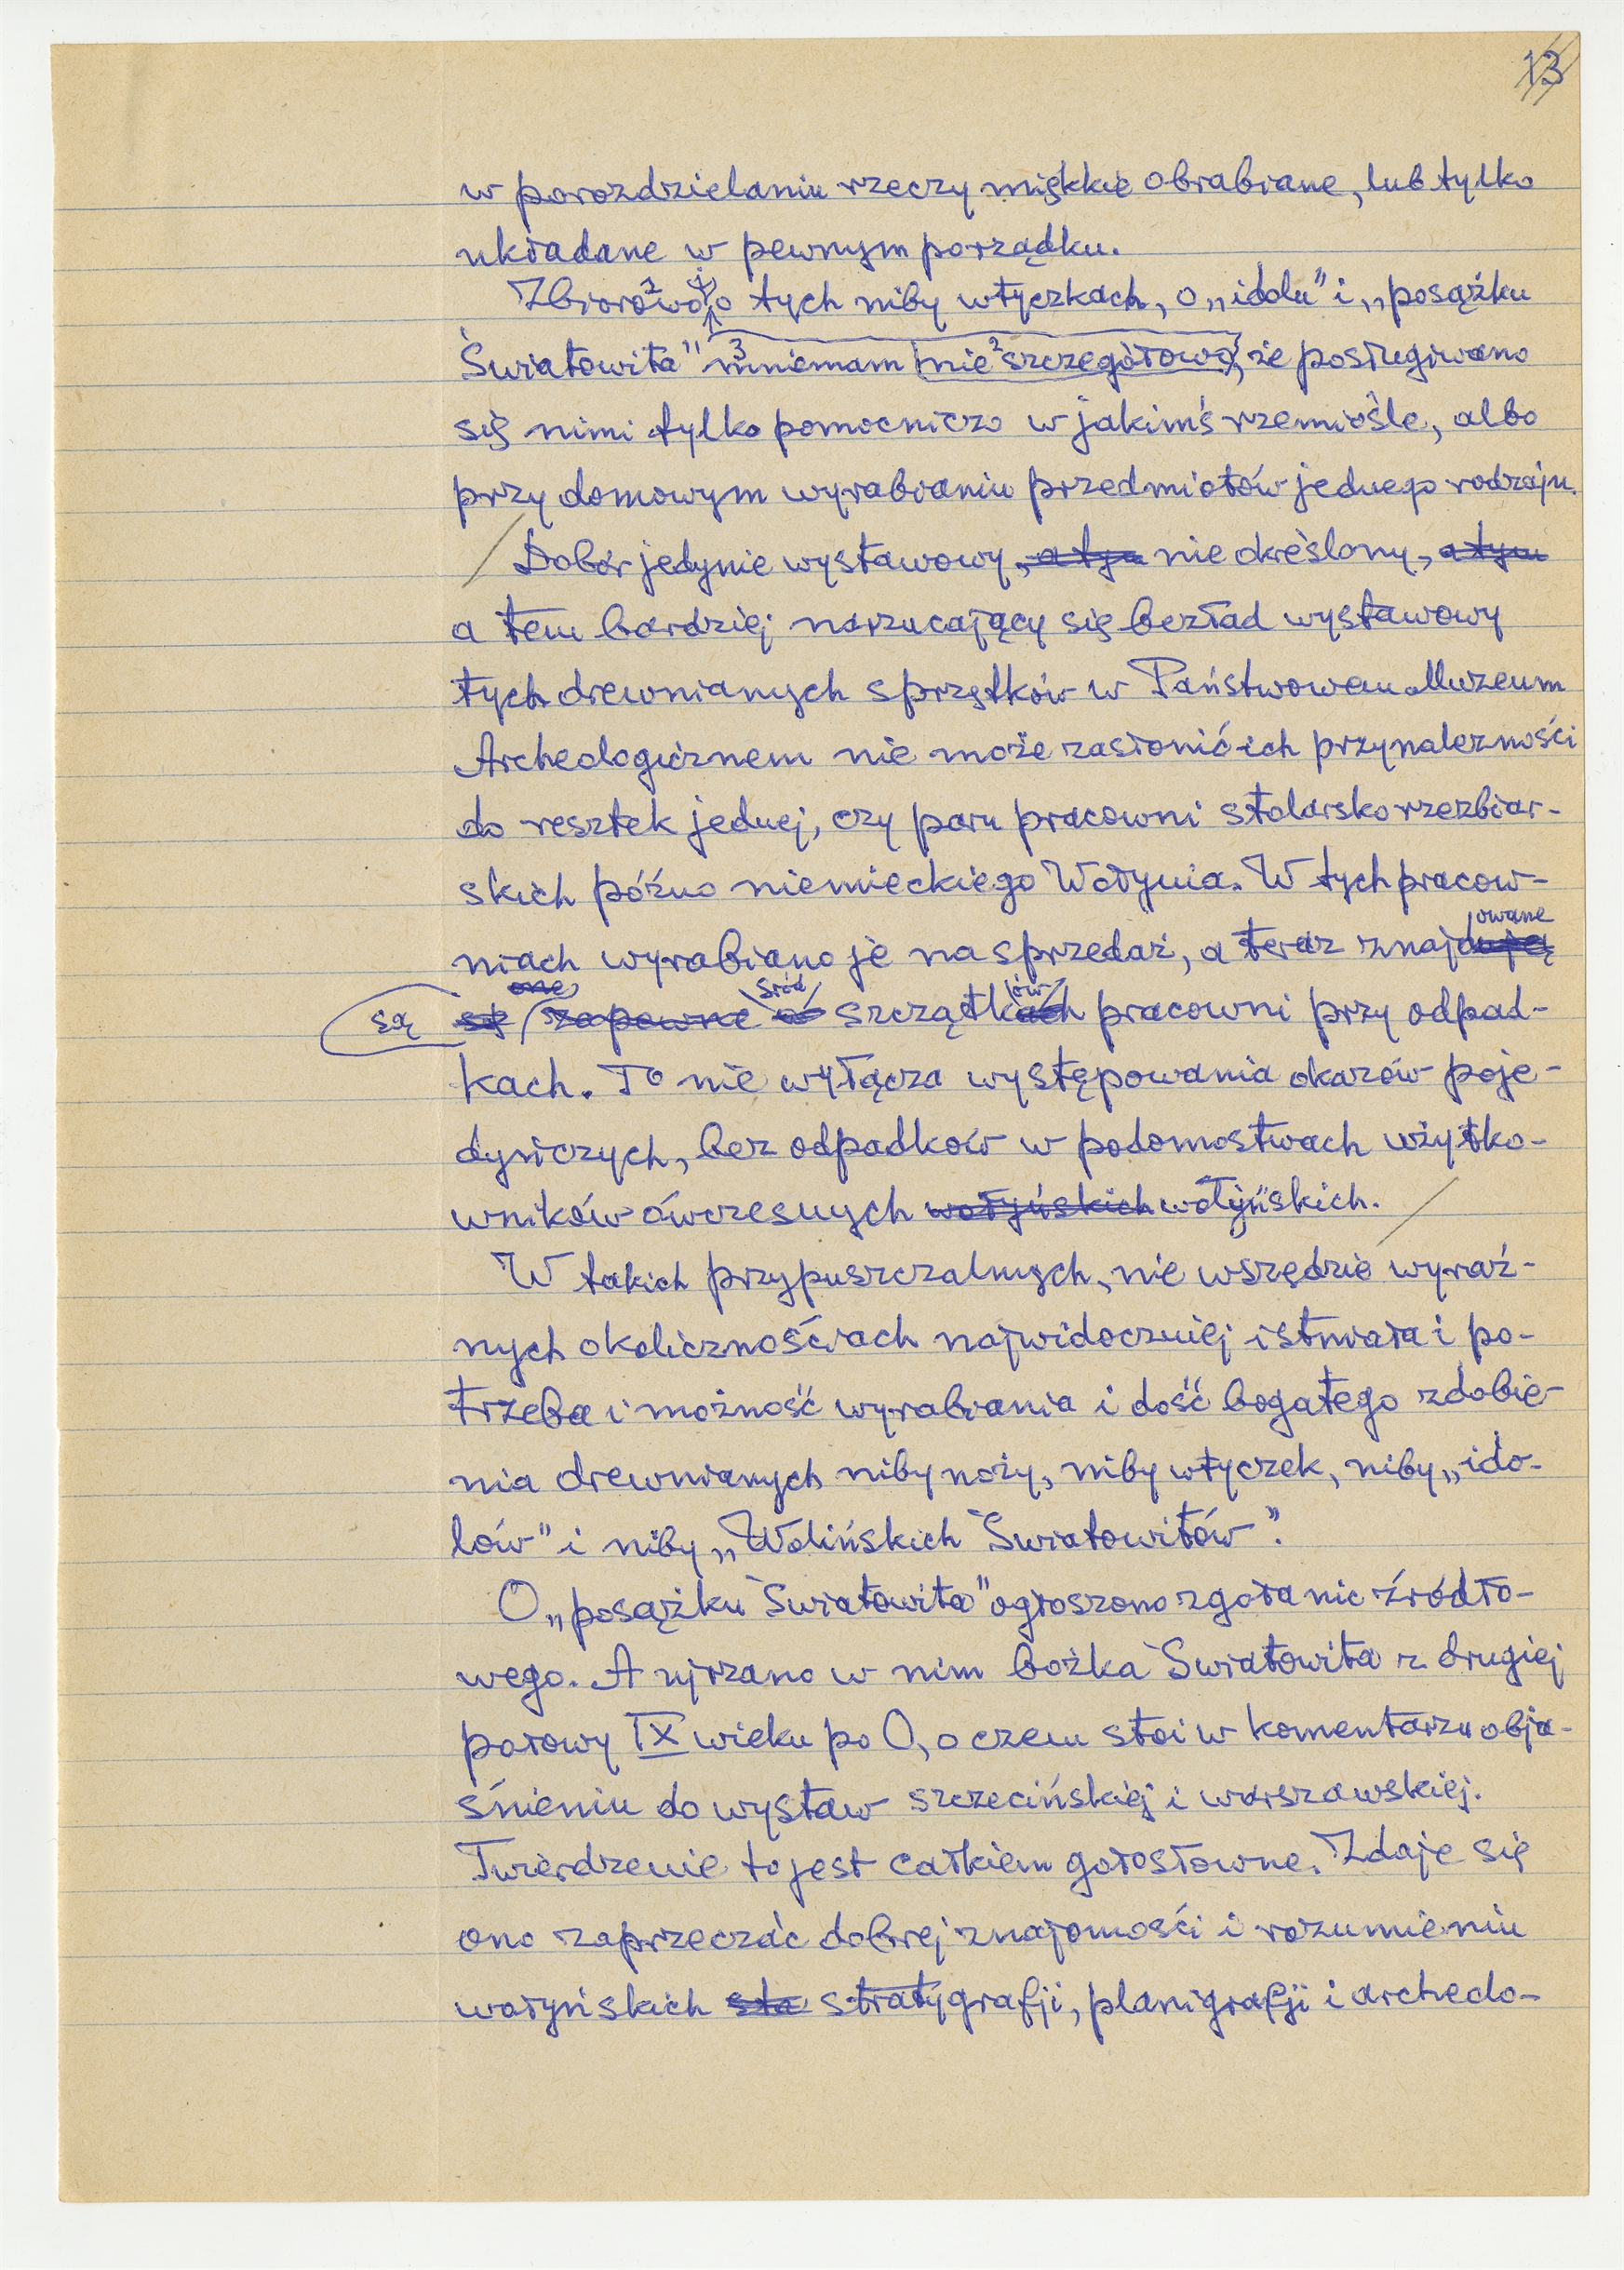 13
w porozdzielaniu rzeczy miękkie obrabiane, lub tylko
układane w pewnym porządku.
Zbiorowo o tych niby wtyczkach, o „idolu” i „posążku
Światowita” mniemam nie szczegółowo, że posługiwano
się nimi tylko pomocniczo w jakimś rzemiośle, albo
przy domowym wyrabianiu przedmiotów jednego rodzaju.
Dobór jedynie wystawowy, a tym nie określony, a tym
a tem bardziej narzucający się bezład wystawowy
tych drewnianych sprzętków w Państwowem Muzeum
Archeologicznem nie może zasłonić ich przynależności
do resztek jednej, czy paru pracowni stolarsko rzezbiar-
skich późno niemieckiego Wołynia. W tych pracow-
niach wyrabiano je na sprzedaż, a teraz znajdują
owane
są się one zapewne w śród szczątkach ów pracowni przy odpad-
kach. To nie wyłącza występowania okazów poje-
dyńczych, bez odpadków w podomostwach użytko-
wników ówczesnych wołyńskich wołyńskich.
W takich przypuszczalnych, nie wszędzie wyraź-
nych okolicznościach najwidoczniej istniała i po-
trzeba i możność wyrabiania i dość bogatego zdobie-
nia drewnianych niby noży, niby wtyczek, niby „ido-
lów” i niby „Wolińskich Światowitów”.
O „posążku Światowita” ogłoszono zgoła nic źródło-
wego. A ujrzano w nim bożka Światowita z drugiej
połowy IX wieku po O, o czem stoi w komentarzu obja-
śnieniu do wystaw szczecińskiej i warszawskiej.
Twierdzenie to jest całkiem gołosłowne. Zdaje się
ono zaprzeczać dobrej znajomości i rozumieniu
wołyńskich sta stratygrafji, planigrafji i archeolo-